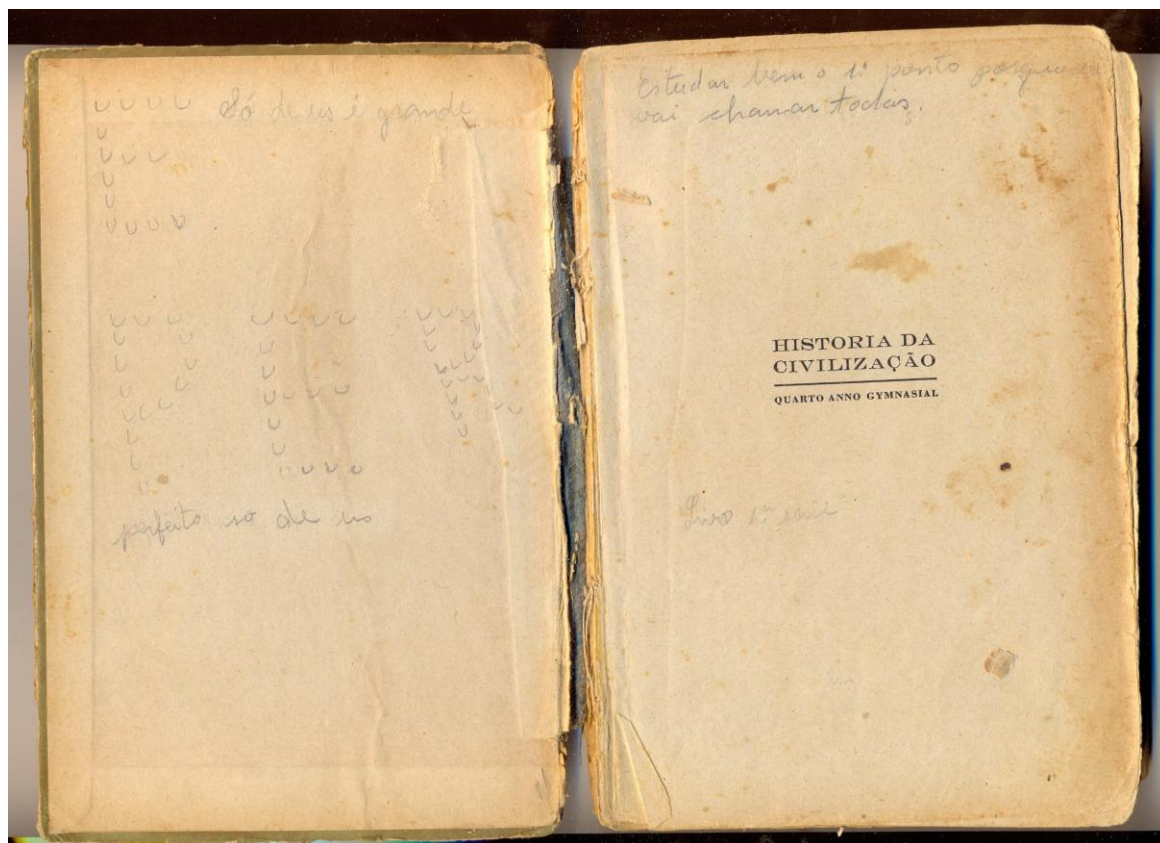 Só deus é grande
perfeito so de us
Estudar bem o 1º ponto porque
vai chamar todas.
HISTORIA DA
CIVILIZAÇÃO
QUARTO ANNO GYMNASIAL
Livro 1ª serie